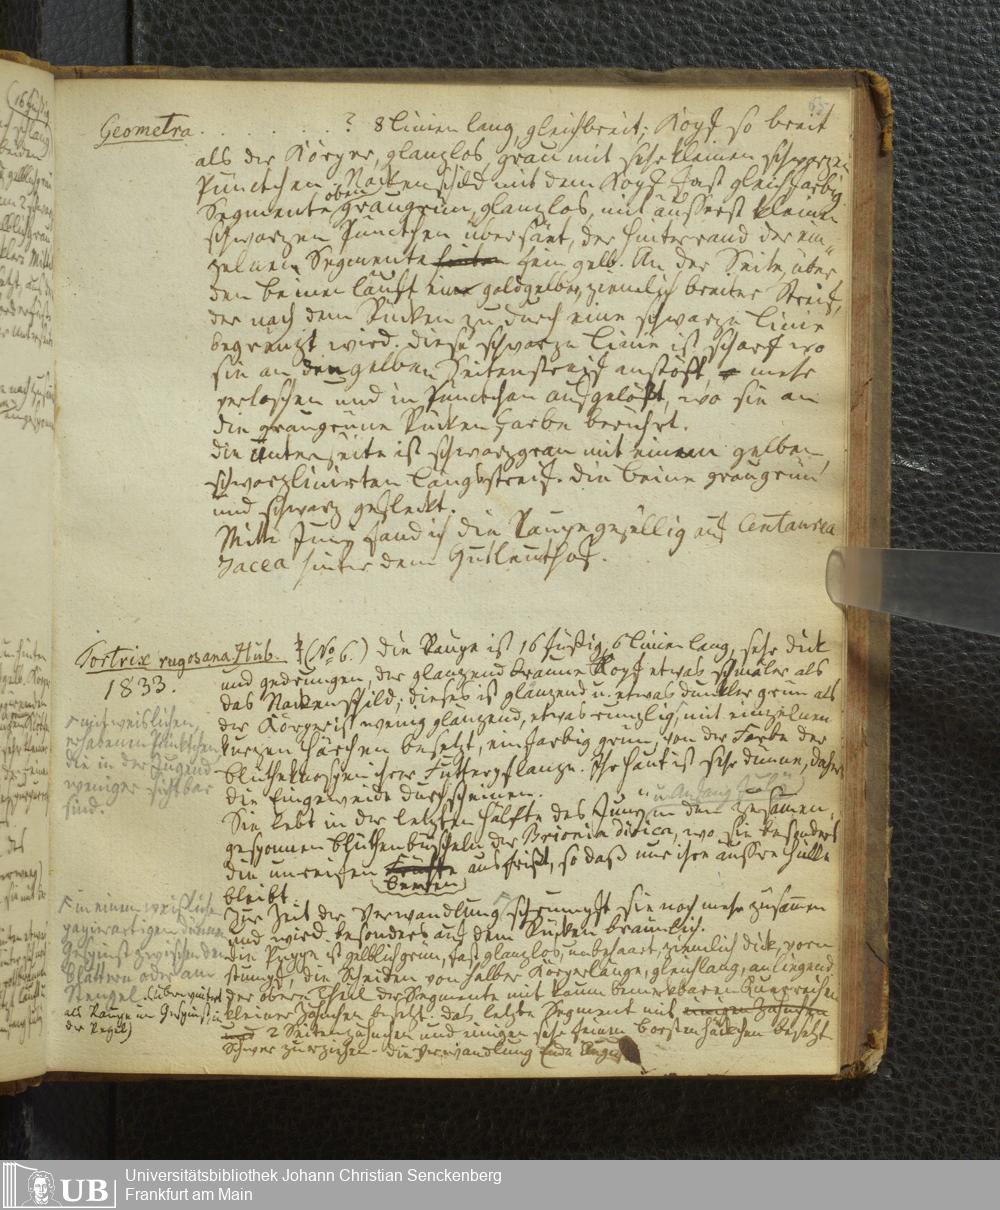 65
Geometra . . . . . . ? 8 Linien lang, gleichbreit; Kopf so breit
als der Körper, glanzlos, grau mit sehr kleinen schwarzen
Pünctchen. Nackenschild mit dem Kopf fast gleichfarbig.
Segmente oben graugrün, glanzlos, mit äusserst kleinen
schwarzen Punctchen übersäet, der Hinterrand der ein-
zelnen Segmente fein gelb. An der Seite, über
den Beinen läuft ein goldgelber, ziemlich breiter Streif,
der nach dem Rücken zu durch eine schwarze Linie
begränzt wird. Diese schwarze Linie ist scharf wo
sie an den gelben Seitenstreif anstößt, mehr
verloschen und in Pünctchen aufgelößt, wo sie an
die graugrüne Rücken Farbe berührt.
Die Unterseite ist schwarzgrau mit einem gelben,
schwarzlinirten Längsstreif. Die Beine graugrün
und schwarz gefleckt.
Mitte Juny fand ich die Raupe gesellig auf Centaurea
Jacea hinter dem Gutleuthof.
Tortrix rugosana. Hüb. (No 6.) Die Raupe ist 16 füßig, 6 Linien lang, sehr dick
1833.
und gedrungen, der glänzend braune Kopf etwas schmäler als
das Nackenschild; dieses ist glänzend u. etwas dunkler grün als
der Körper ist wenig glänzend, etwas runzlig, mit einzelnen
kurzen Härchen besetzt, einfarbig grün, von der Farbe der
Blüthenknospen ihrer Futterpflanze. Ihr Haut ist sehr dünne, daher
die Eingeweide durchscheinen.
mit weislichen,
erhabenen Pünktchen,
die in der Jugend
weniger sichtbar
sind.
Sie lebt in der letzten Hälfte des Juny u. Anfang July in den zusamen,
gesponnen Blüthenbüscheln der Brionia dioica, wo sie besonders
die unreifen Früchte (Beeren) ausfrißt, so daß nur ihre äussere Hülle
bleibt.
Zur Zeit der Verwandlung schrumpft sie noch mehr zusamen
und wird besonders auf dem Rücken bräunlich.
in einem weißlichen
papierartigen dünnen
Gespinst zwischen den
Blättern oder am
Stengel. (Überwintert
als Raupe im Gespinst, in
der Regel)
Die Puppe ist gelblichgrün, fast glanzlos, unbehaart, ziemlich dick, vorn
stumpf, die Scheiden von halber Körperlänge, gleichlang, anliegend,
der obere Theil der Segmente mit kaum bemerkbaren Querreihen
kleiner Zähnchen besetzt. das letzte Segment mit einigen Zähnchen
und 2 Seitenzähnchen und einigen sehr feinen Borstenhäkchen besetzt
Schwer zu erziehen. Die Verwandlung Ende August
UB
Universitätsbibliothek Johann Christian Senckenberg
Frankfurt am Main